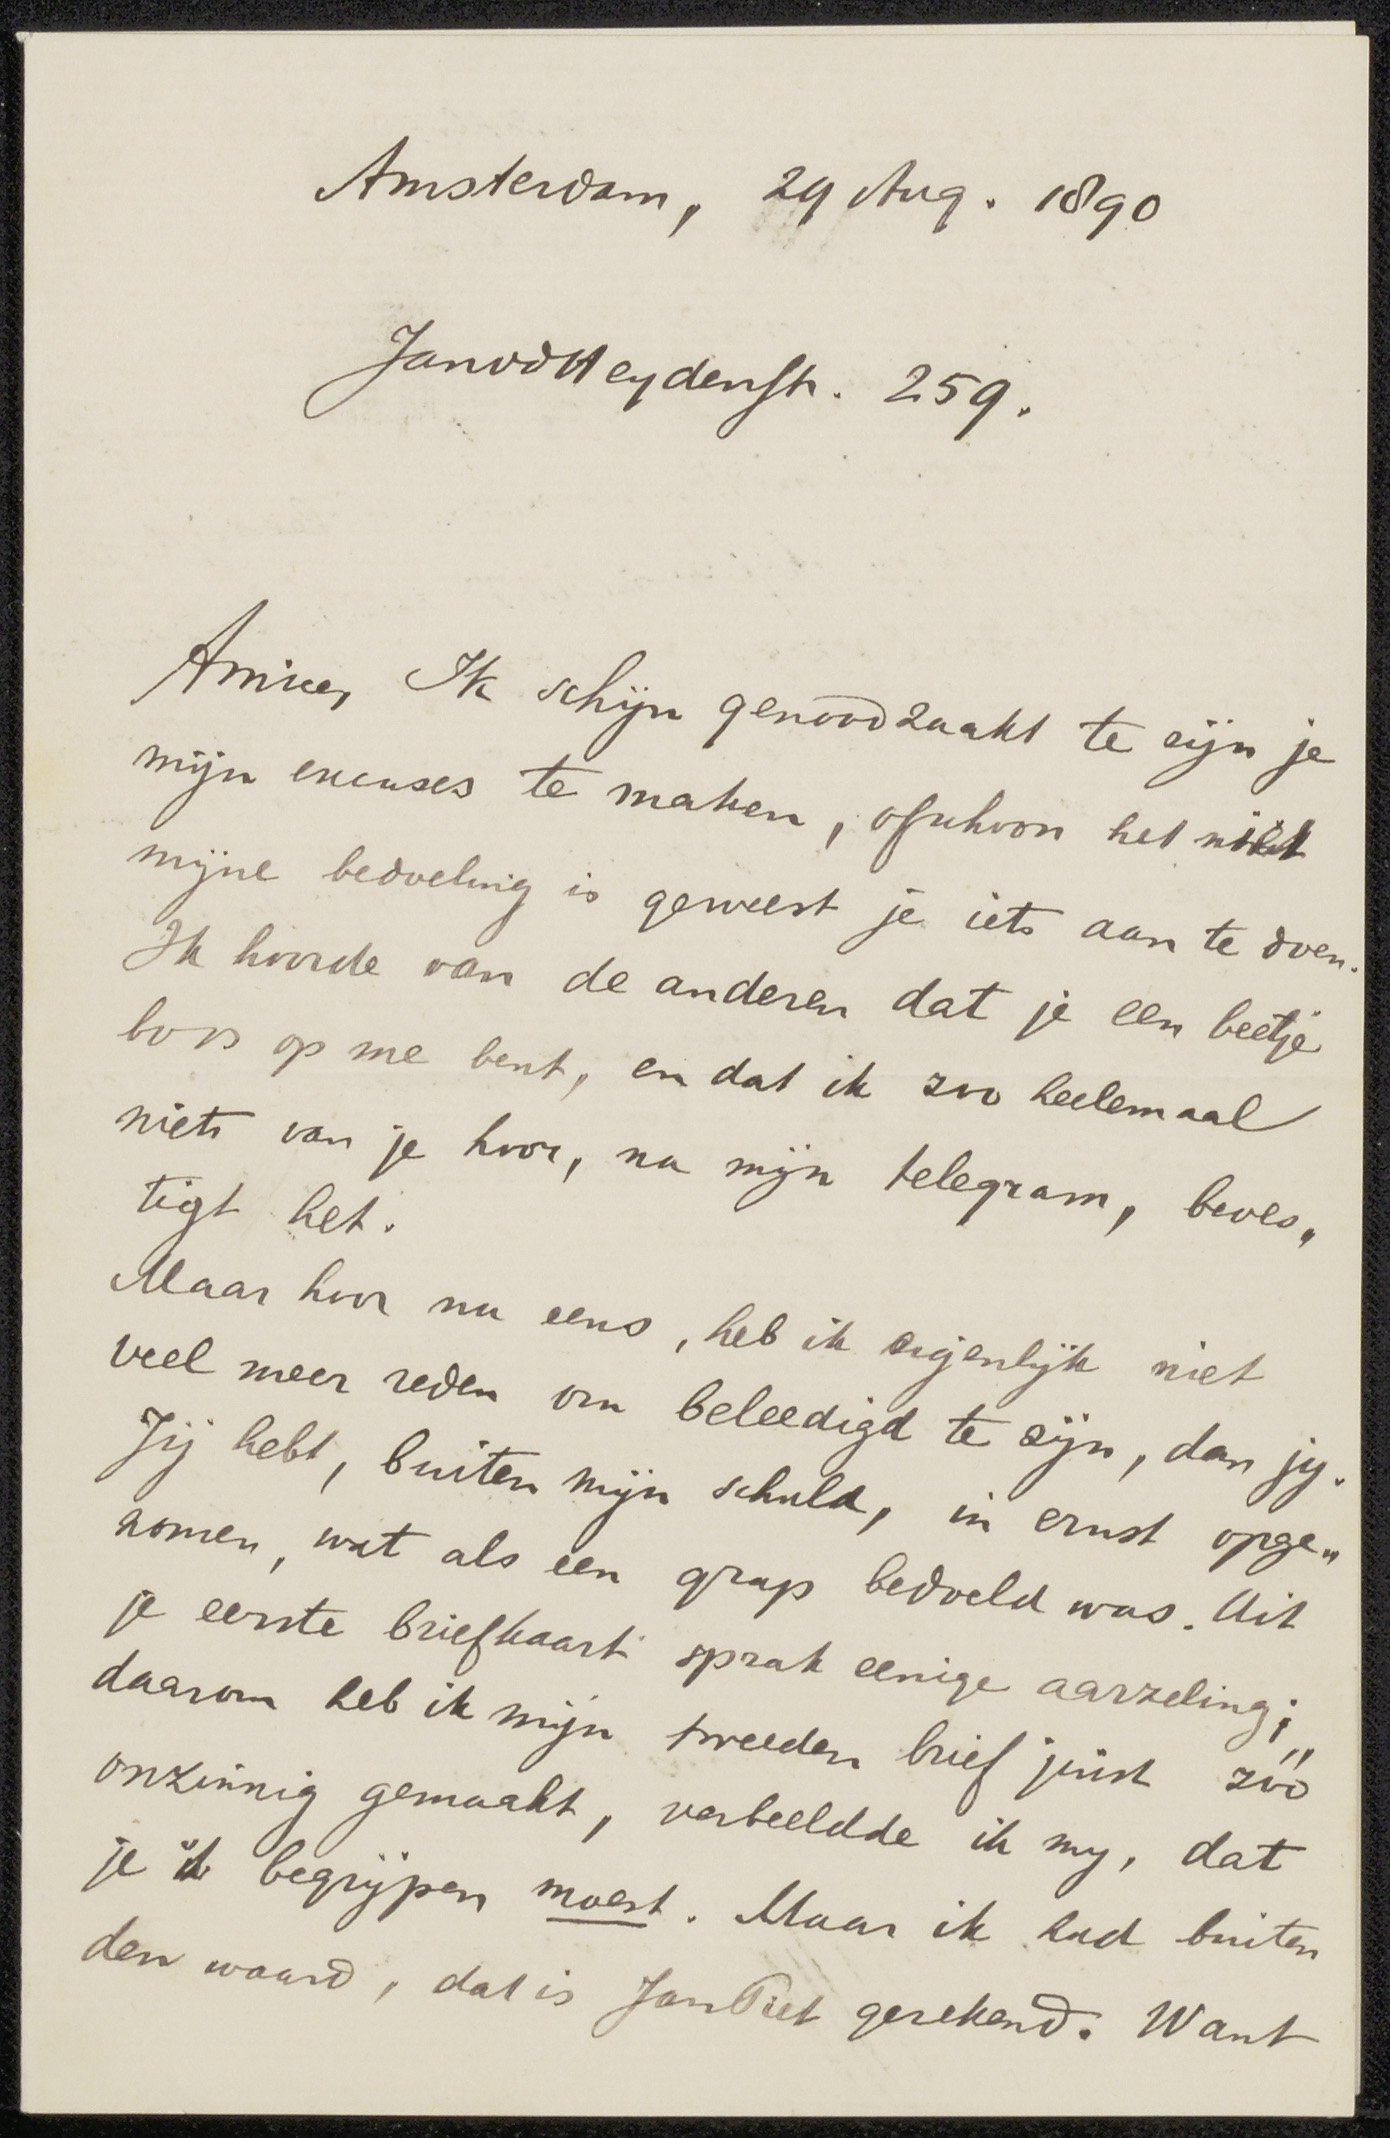 Amsterdam, 29 Aug. 1890
JanvdHeydenstr. 259.
Amice, Ik schijn genoodzaakt te zijn je
mijn excuses te maken, ofschoon het niet
mijne bedoeling is geweest je iets aan te doen.
Ik hoorde van de anderen dat je een beetje
boos op me bent, en dat ik zoo heelemaal
niets van je hoor, na mijn telegram, beves„
tigt het.
Maar hoor nu eens, heb ik eigenlijk niet
veel meer reden om beleedigd te zijn, dan jij.
Jij hebt, buiten mijn schuld, in ernst opge„
nomen, wat als een grap bedoeld was. Uit
je eerste briefkaart sprak eenige aarzeling;
daarom heb ik mijn tweeden brief juist zóó
onzinnig gemaakt, verbeeldde ik my, dat
je 't begrijpen moest. Maar ik had buiten
den waard, dat is Jan Piet gerekend. Want